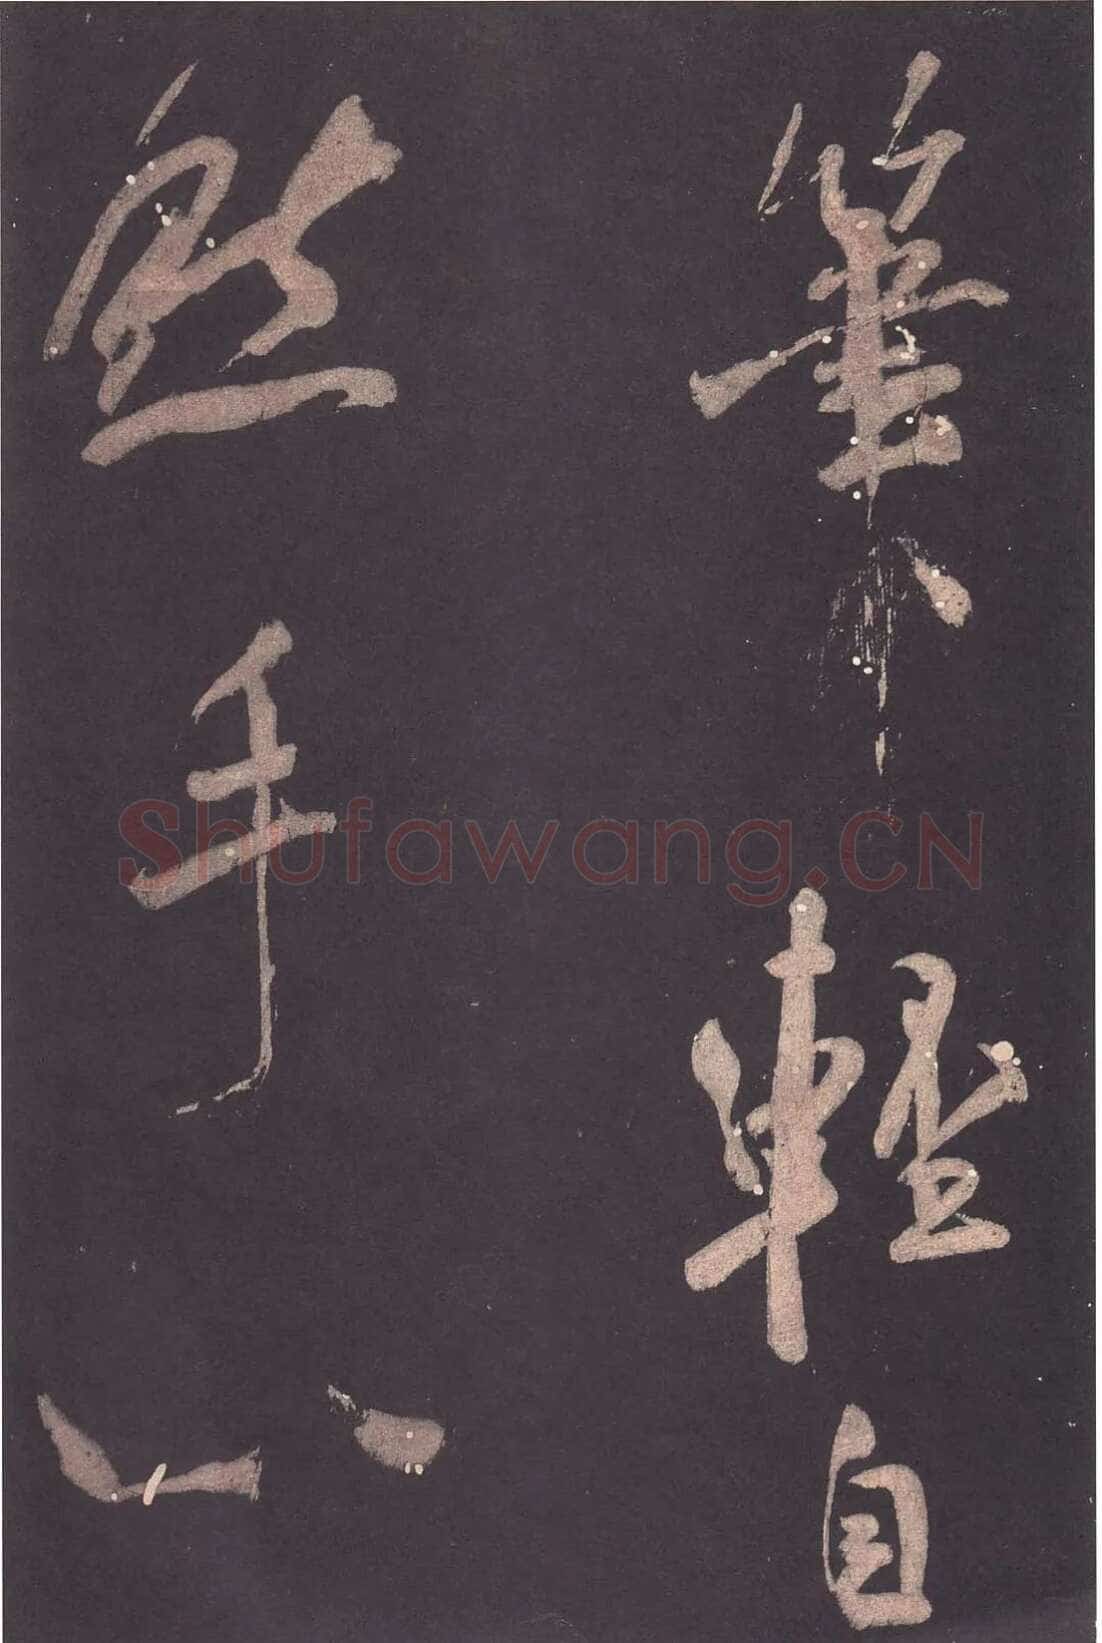 筆輕自
然手心
Shufawang.CN